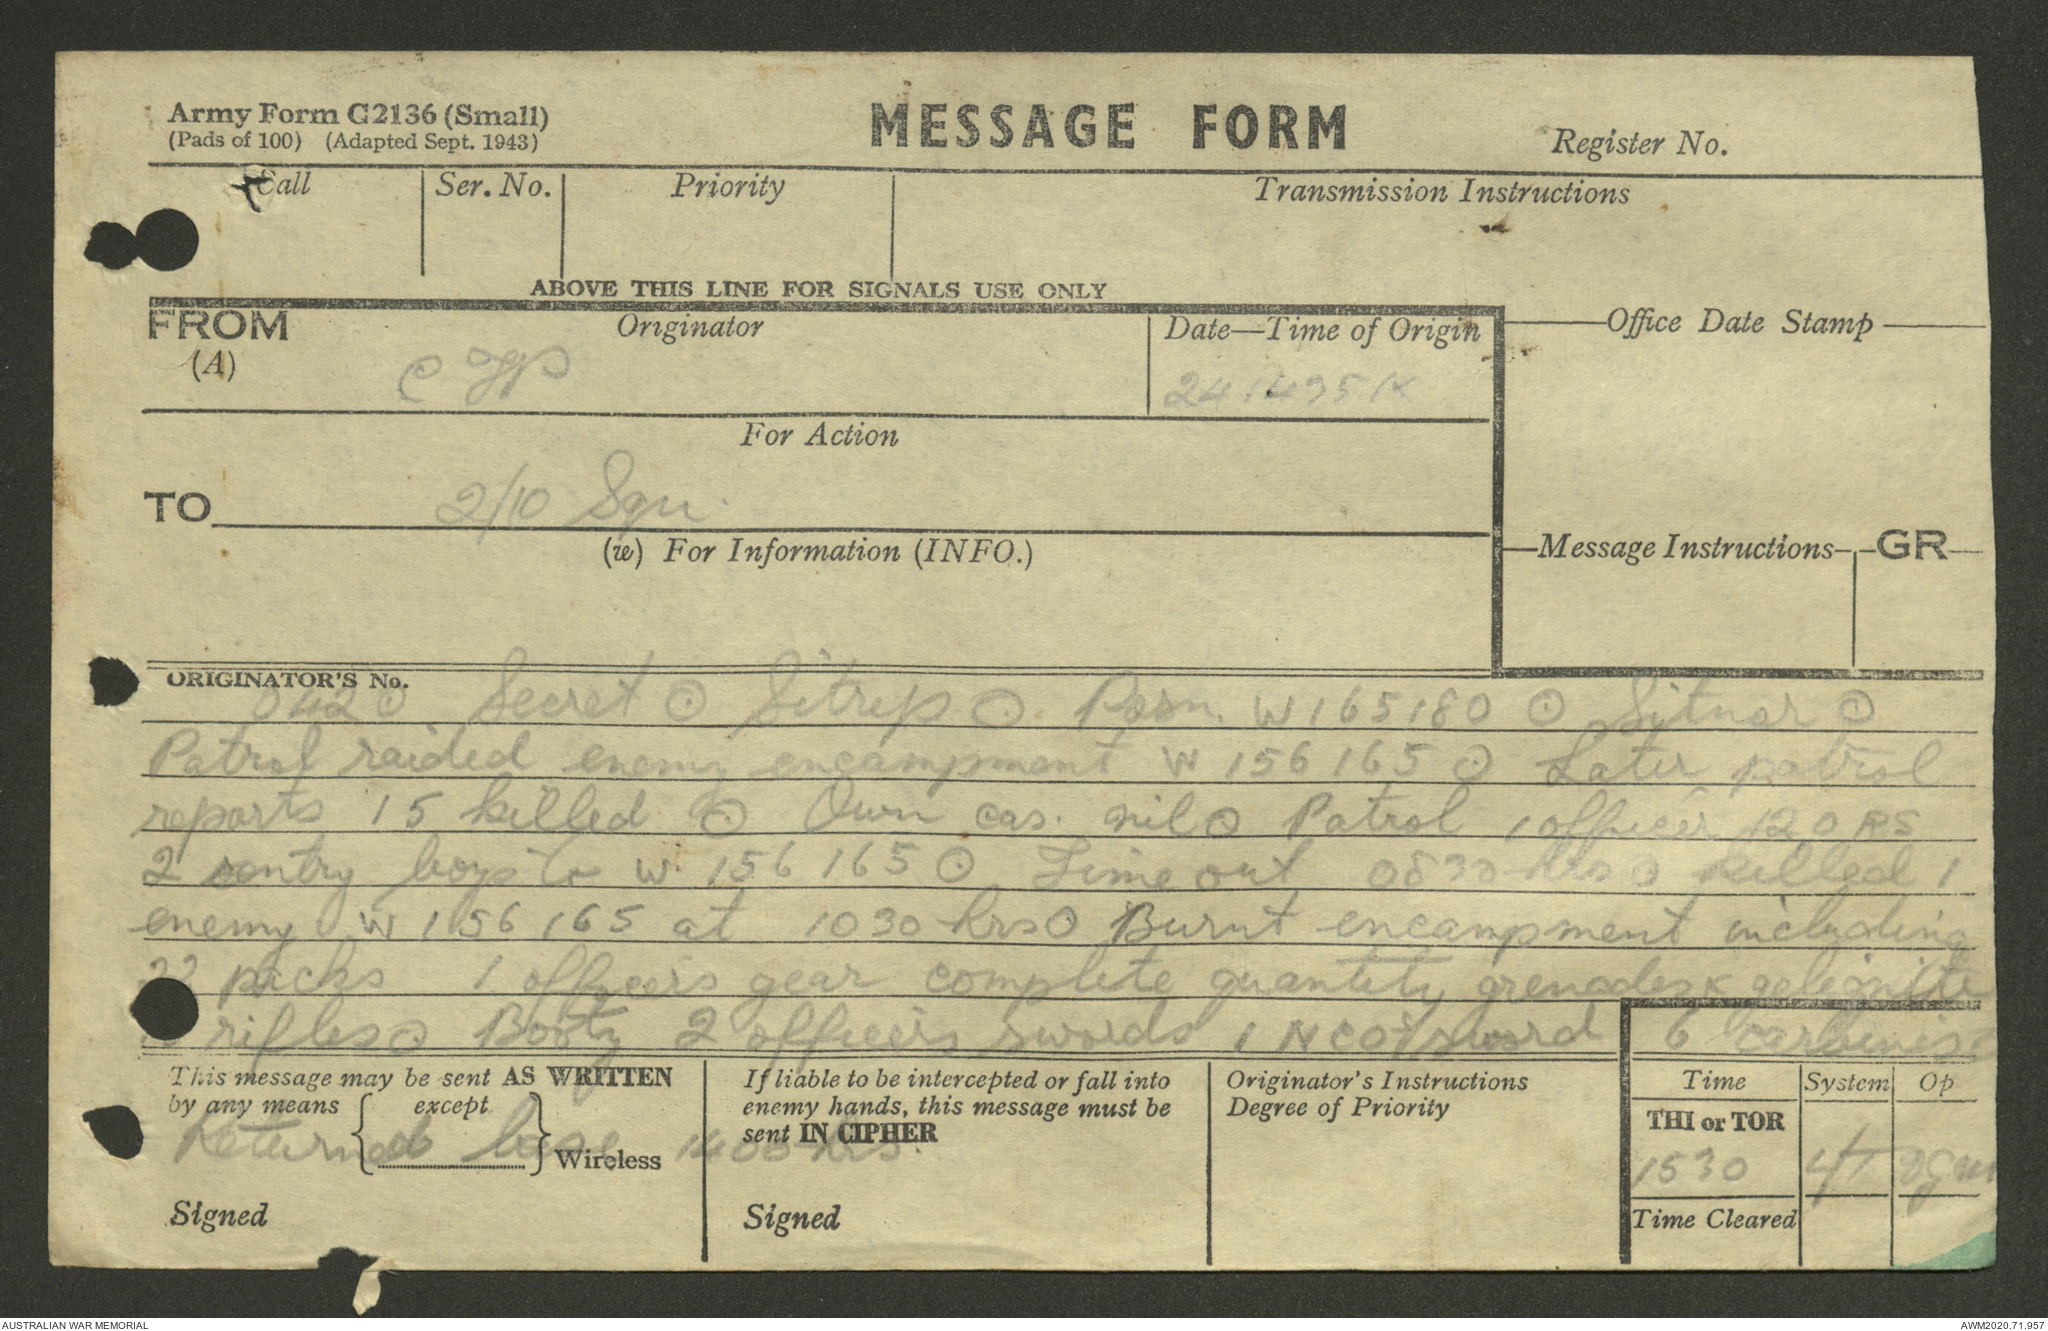 Army Form C2136 (Small)
(Pads of 100) (Adapted Sept. 1943)
MESSAGE FORM
Register No.
Call
Ser. No.
Priority
Transmission Instructions
ABOVE THIS LINE FOR SIGNALS USE ONLY
FROM
(A)
Originator
C Tp
Date—Time of Origin
241435K
Office Date Stamp
For Action
TO
2/10 Sqn.
(w) For Information (INFO.)
Message Instructions
GR
ORIGINATOR'S No.
042 ⊙ Secret ⊙ Sitrep ⊙ Posn. W 165180 ⊙ Sitnor ⊙
Patrol raided enemy encampment W 156165 ⊙ Later patrol
reports 15 killed ⊙ Own cas. nil ⊙ Patrol 1 officer 12 ORS
2 sentry boys to W 156165 ⊙ Time out 0830 hrs ⊙ killed 1
enemy W 156165 at 1030 hrs ⊙ Burnt encampment including
22 packs 1 officers gear complete quantity grenades & gelignite
rifles ⊙ Booty 2 officers swords 1 NCO's sword 6 carbines ⊙
This message may be sent AS WRITTEN
by any means { except } Wireless
Returned base 1400 hrs.
Signed
If liable to be intercepted or fall into
enemy hands, this message must be
sent IN CIPHER
Signed
Originator's Instructions
Degree of Priority
Time
System
Op
THI or TOR
1530
Time Cleared
AUSTRALIAN WAR MEMORIAL
AWM2020.71.957